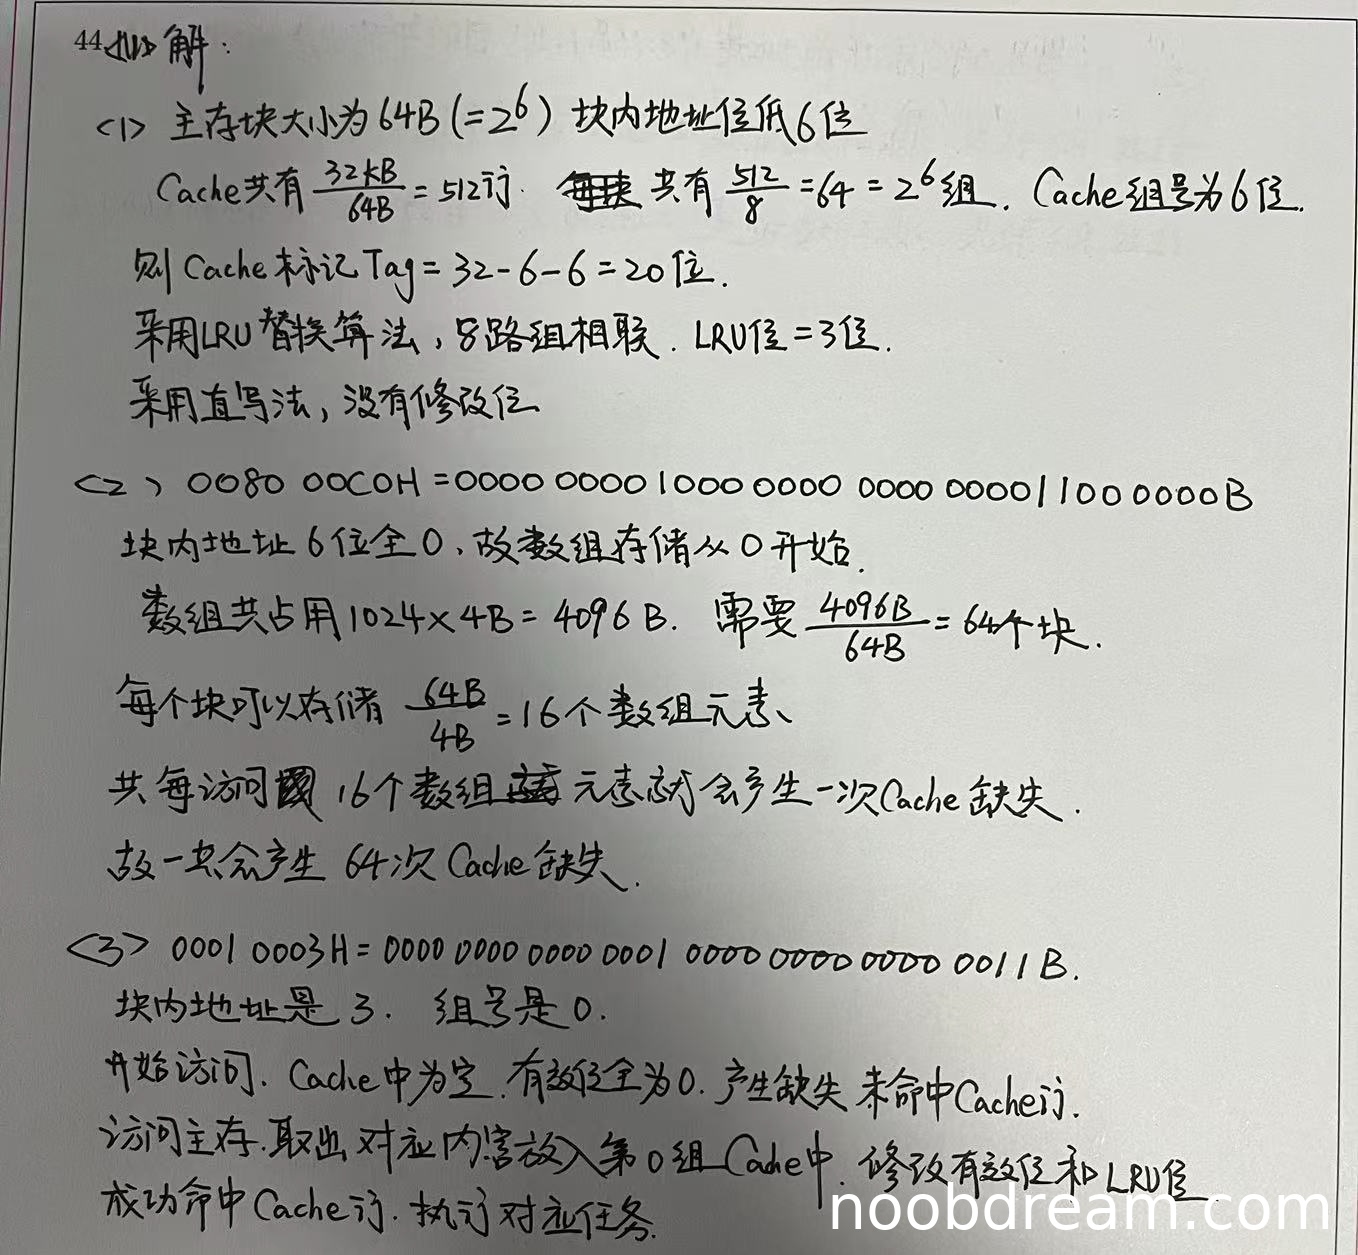 44 解：
<1> 主存块大小为64B(=2^6) 块内地址位低6位
Cache共有 32KB/64B = 512行. 共有 512/8 = 64 = 2^6组. Cache组号为6位.
则Cache标记Tag = 32-6-6 = 20位.
采用LRU替换算法, 8路组相联. LRU位 = 3位.
采用直写法, 没有修改位
<2> 0080 00C0H = 0000 0000 1000 0000 0000 0000 1100 0000B
块内地址6位全0, 故数组存储从0开始.
数组共占用1024×4B = 4096B. 需要 4096B/64B = 64个块.
每个块可以存储 64B/4B = 16个数组元素、
共每访问 16个数组 元素就会产生一次Cache缺失.
故一共会产生 64次Cache缺失.
<3> 0001 0003H = 0000 0000 0000 0001 0000 0000 0000 0011B.
块内地址是3. 组号是0.
开始访问. Cache中为空. 有效位全为0. 产生缺失 未命中Cache行.
访问主存. 取出对应内容放入第0组Cache中. 修改有效位和LRU位
成功命中Cache行. 执行对应任务.
noobdream.com